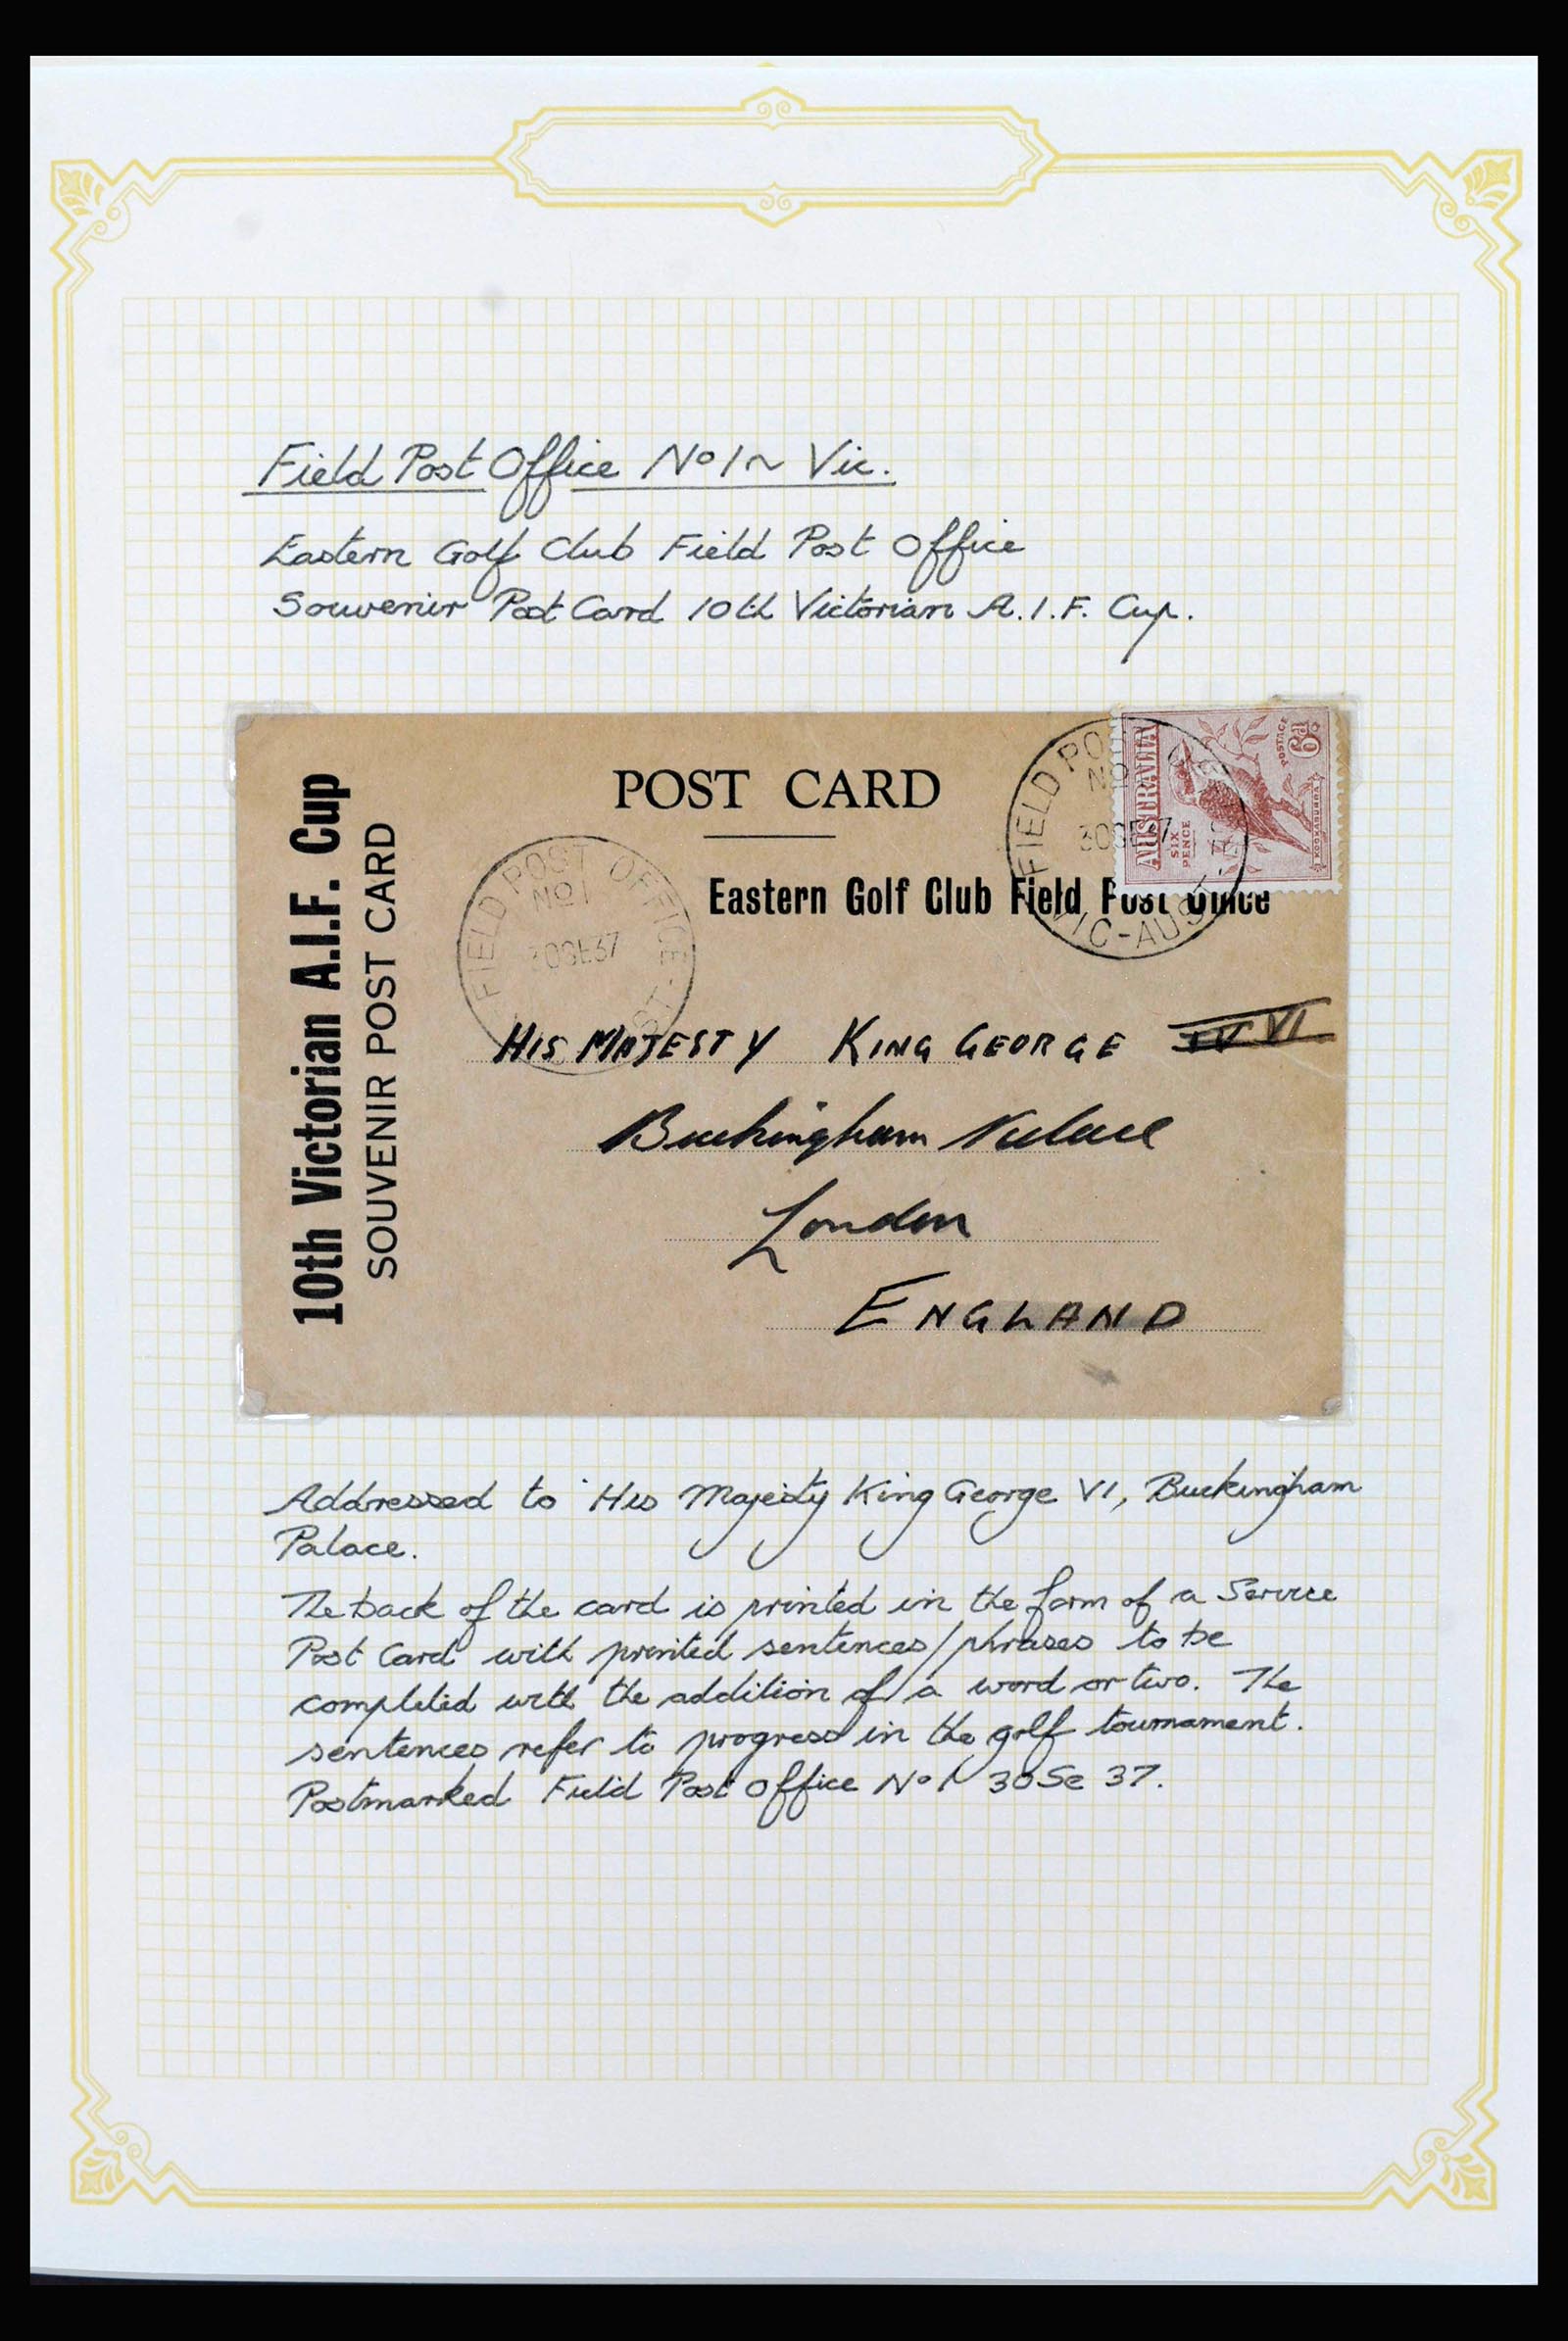 Field Post Office No 1 ~ Vic.
Eastern Golf Club Field Post Office
Souvenir Post Card 10th Victorian A.I.F. Cup.
10th Victorian A.I.F. Cup
SOUVENIR POST CARD
POST CARD
Eastern Golf Club Field Post Office
FIELD POST OFFICE
No 1
30SE37
FIELD PO
No
30SE37
VIC-AUST
AUSTRALIA
SIX
PENCE
POSTAGE
6d
KOOKABURRA
HIS MAJESTY KING GEORGE IV VI
Buckingham Palace
London
ENGLAND
Addressed to His Majesty King George VI, Buckingham
Palace.
The back of the card is printed in the form of a Service
Post Card with printed sentences/phrases to be
completed with the addition of a word or two. The
sentences refer to progress in the golf tournament.
Postmarked Field Post Office No 1 30 Se 37.